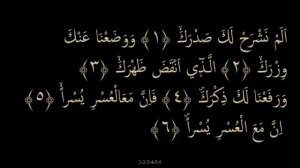 اَلَمْ نَشْرَحْ لَكَ صَدْرَكَۙ ﴿١﴾ وَوَضَعْنَا عَنْكَ
وِزْرَكَۙ ﴿٢﴾ اَلَّذ۪ٓي اَنْقَضَ ظَهْرَكَۙ ﴿٣﴾
وَرَفَعْنَا لَكَ ذِكْرَكَۜ ﴿٤﴾ فَاِنَّ مَعَ الْعُسْرِ يُسْراًۙ ﴿٥﴾
اِنَّ مَعَ الْعُسْرِ يُسْراًۜ ﴿٦﴾